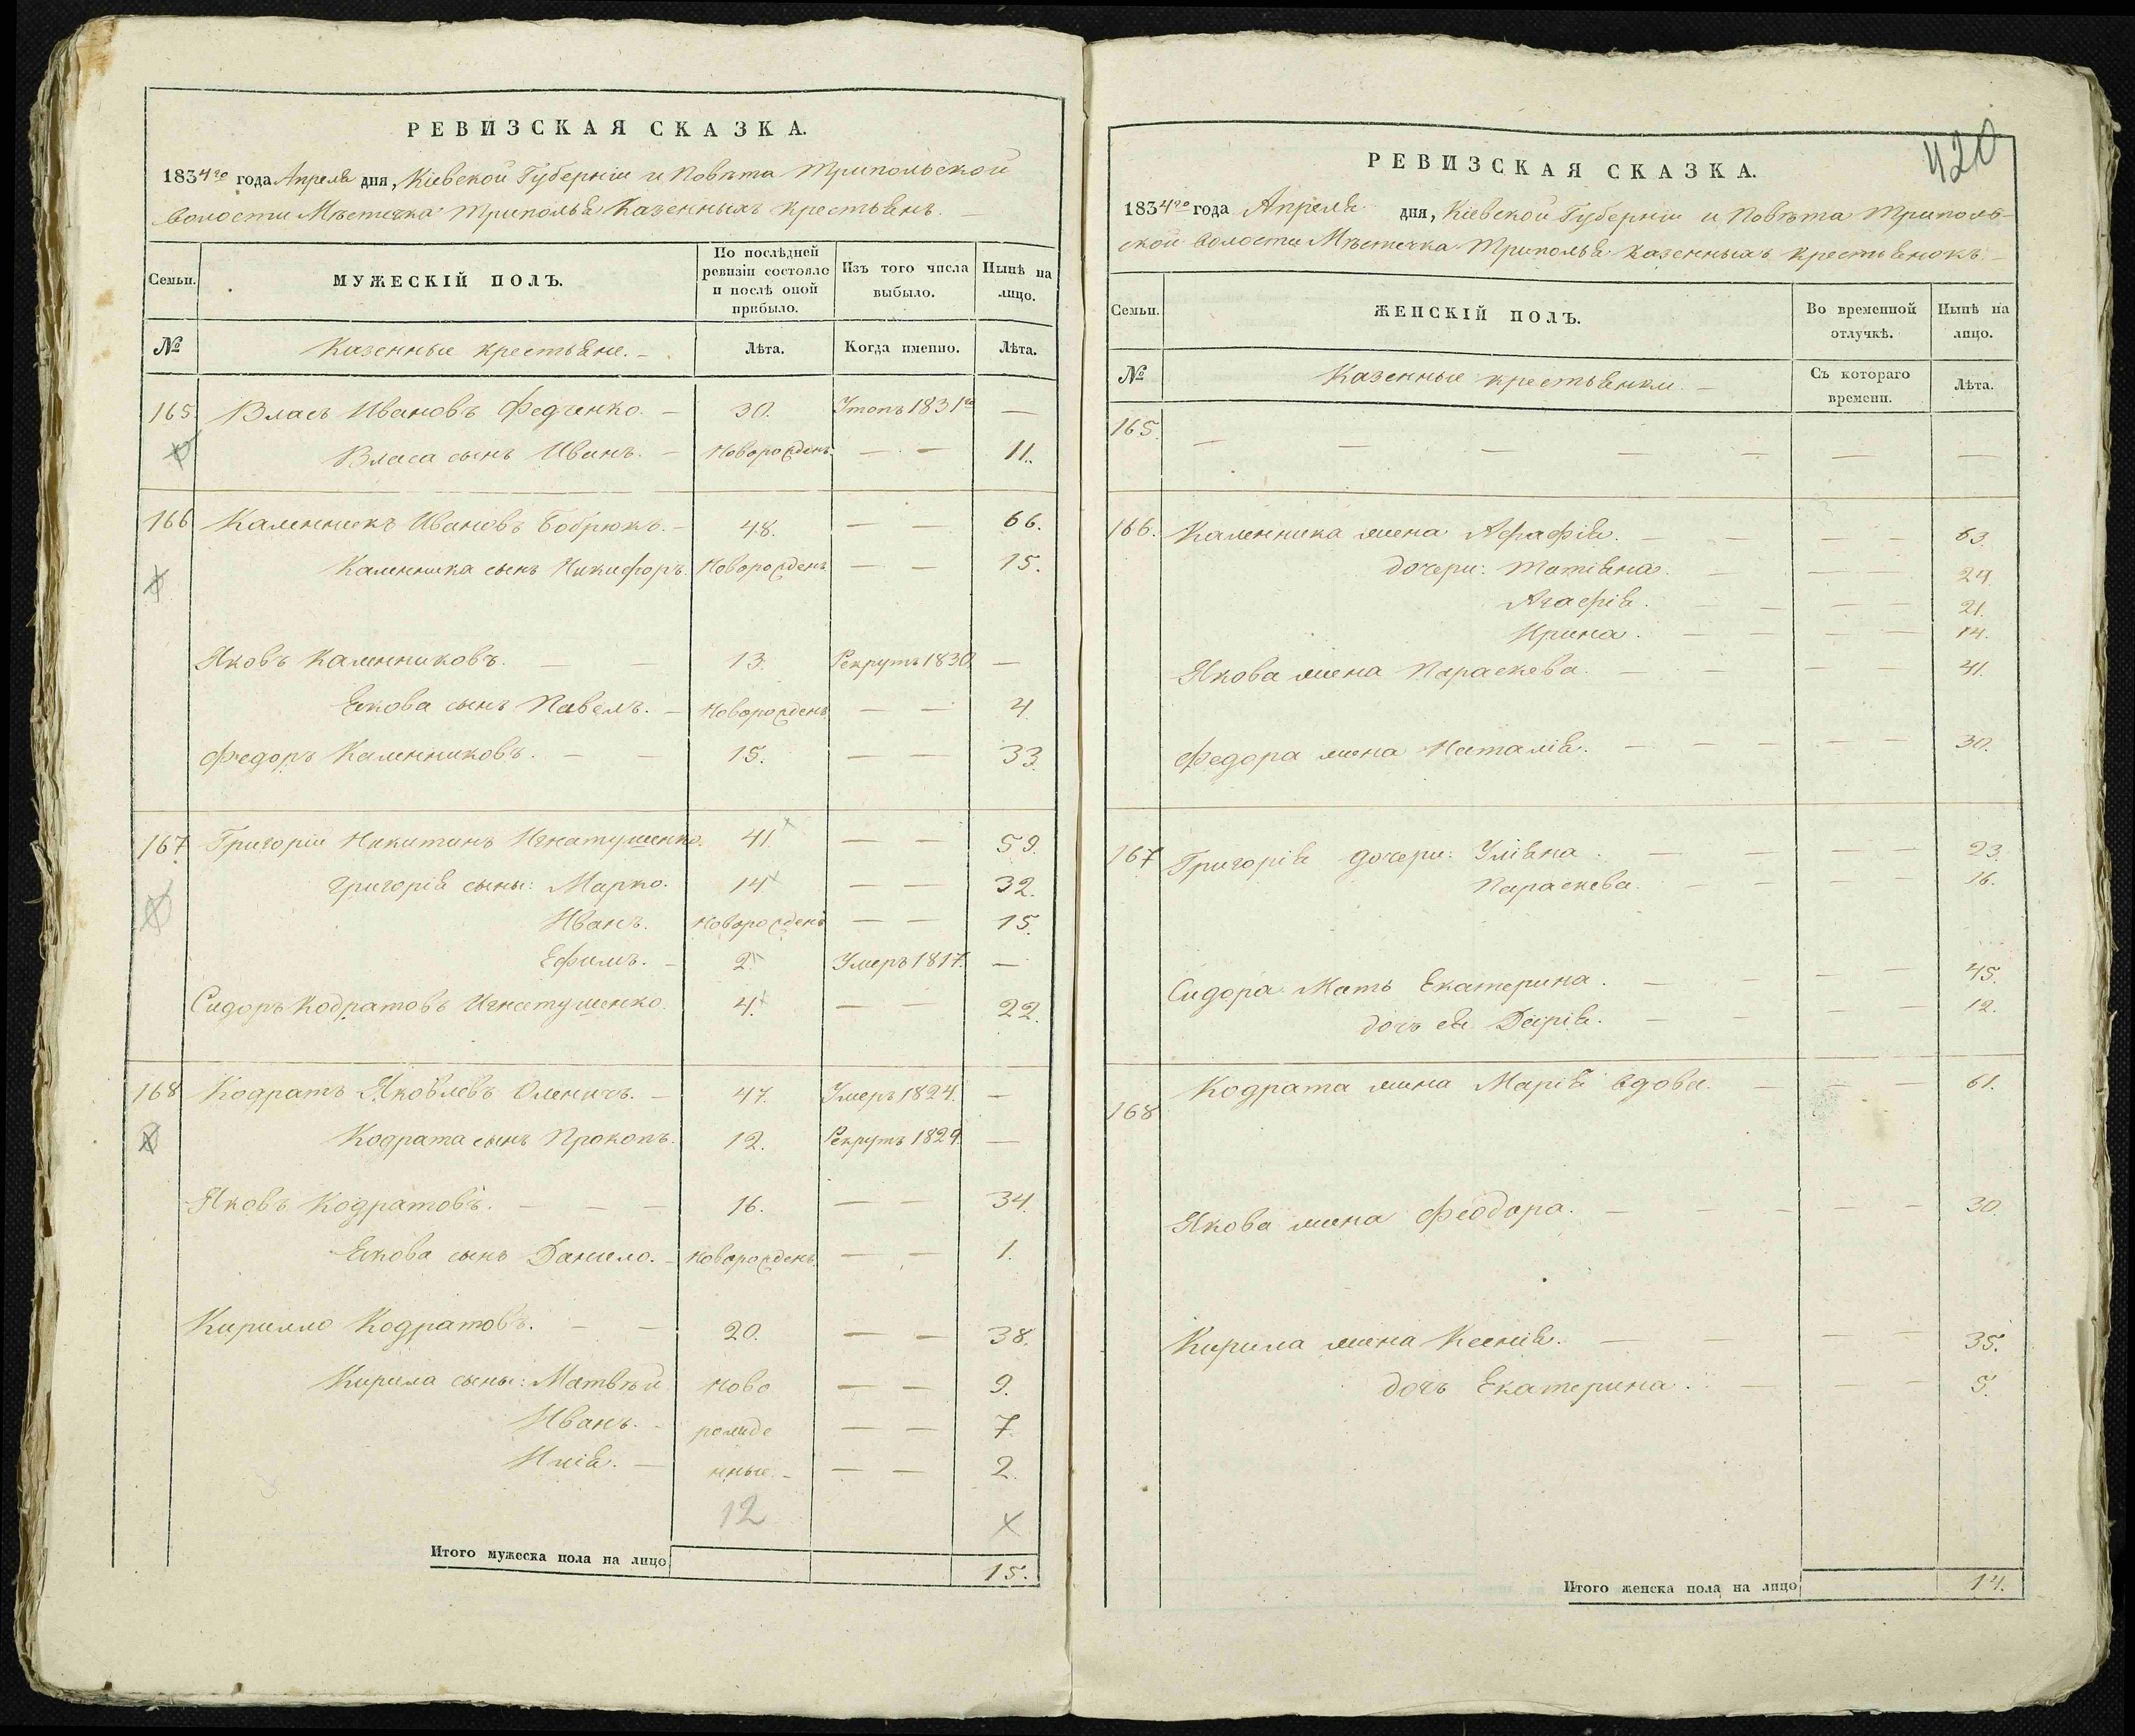 РЕВИЗСКАЯ СКАЗКА.
1834го года Апреля дня, Кіевской Губерніи и Повѣта Трипольской
волости Мѣстечка Триполья Казенныхъ крестьянъ.
Семьи.
МУЖЕСКІЙ ПОЛЪ.
По послѣдней ревизіи состояло и послѣ оной прибыло.
Изъ того числа выбыло.
Нынѣ на лицо.
№
Казенные крестьяне.
Лѣта.
Когда именно.
Лѣта.
165. Власъ Ивановъ Федченко. — 30. Утопъ 1831го —
Власа сынъ Иванъ. — Новорожденъ — — 11.
166 Каленникъ Ивановъ Бобрюкъ. — 48. — — 66.
Каленника сынъ Никифоръ. Новорожденъ — — 15.
Яковъ Каленниковъ. — — 13. Рекрутъ 1830. —
Якова сынъ Павелъ. — Новорожденъ — — 4.
Федоръ Каленниковъ. — — 15. — — 33.
167 Григорій Никитинъ Игнатушенко. 41. — — 59.
Григорія сыны: Марко. 14 — — 32.
Иванъ. Новорожденъ — — 15.
Ефимъ. — 2. Умеръ 1817. —
Сидоръ Кодратовъ Игнатушенко. 4. — — 22.
168 Кодратъ Яковлевъ Оленичъ. — 47. Умеръ 1824. —
Кодрата сынъ Прокопъ. 12. Рекрутъ 1829. —
Яковъ Кодратовъ. — — — 16. — — 34.
Якова сынъ Данило. — Новорожденъ — — 1.
Кирилло Кодратовъ. — — 20. — — 38.
Кирила сыны: Матвѣй ново — — 9.
Иванъ. — рожде — — 7.
Илія. — нные. — — — 2.
12 х
Итого мужеска пола на лицо 15.
420
РЕВИЗСКАЯ СКАЗКА.
1834го года Апреля дня, Кіевской Губерніи и Повѣта Триполь-
ской волости Мѣстечка Триполья казенныхъ крестьянокъ. —
Семьи.
ЖЕНСКІЙ ПОЛЪ.
Во временной отлучкѣ.
Нынѣ на лицо.
№
Казенные крестьянки. —
Съ котораго времени.
Лѣта.
165. — — — — — — —
166. Каленника жена Агафія. — — — — 63.
дочери: Татіяна. — — — 24.
Агафія. — — — — 21.
Ирина. — — — — 14.
Якова жена Параскева. — — — — 41.
Федора жена Наталія. — — — — — 30.
167 Григорія дочери: Уліяна. — — — — 23.
Параскева. — — — — 16.
Сидора Мать Екатерина. — — — — 45.
дочь ея Дарія. — — — — 12.
168 Кодрата жена Марія вдова. — — — 61.
Якова жена Феодора. — — — — — 30.
Кирила жена Ксенія. — — — 35.
дочь Екатерина. — — — 5.
Итого женска пола на лицо 14.